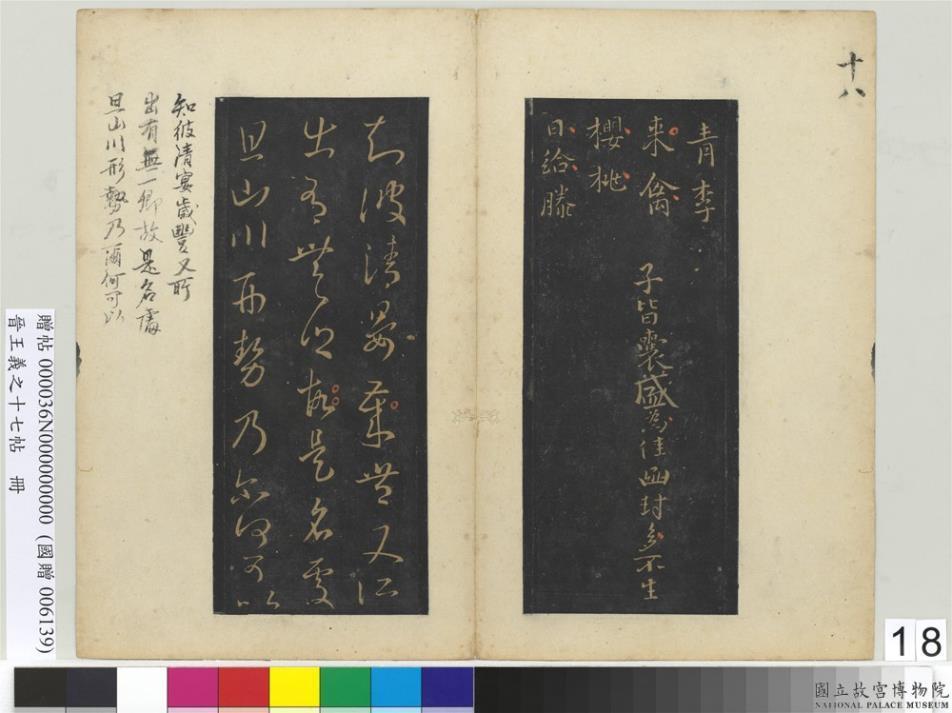 十八
青李
來禽
櫻桃
日給滕
子皆囊盛為佳函封多不生
知彼清晏歲豐又所
出有無一鄉故是名處
且山川形勢乃爾何可以
知彼清宴歲豐又所
出有無一鄉故是名處
且山川形勢乃爾何可以
贈帖 000036N000000000 (國贈 006139)
晉王羲之十七帖 冊
18
國立故宮博物院
NATIONAL PALACE MUSEUM